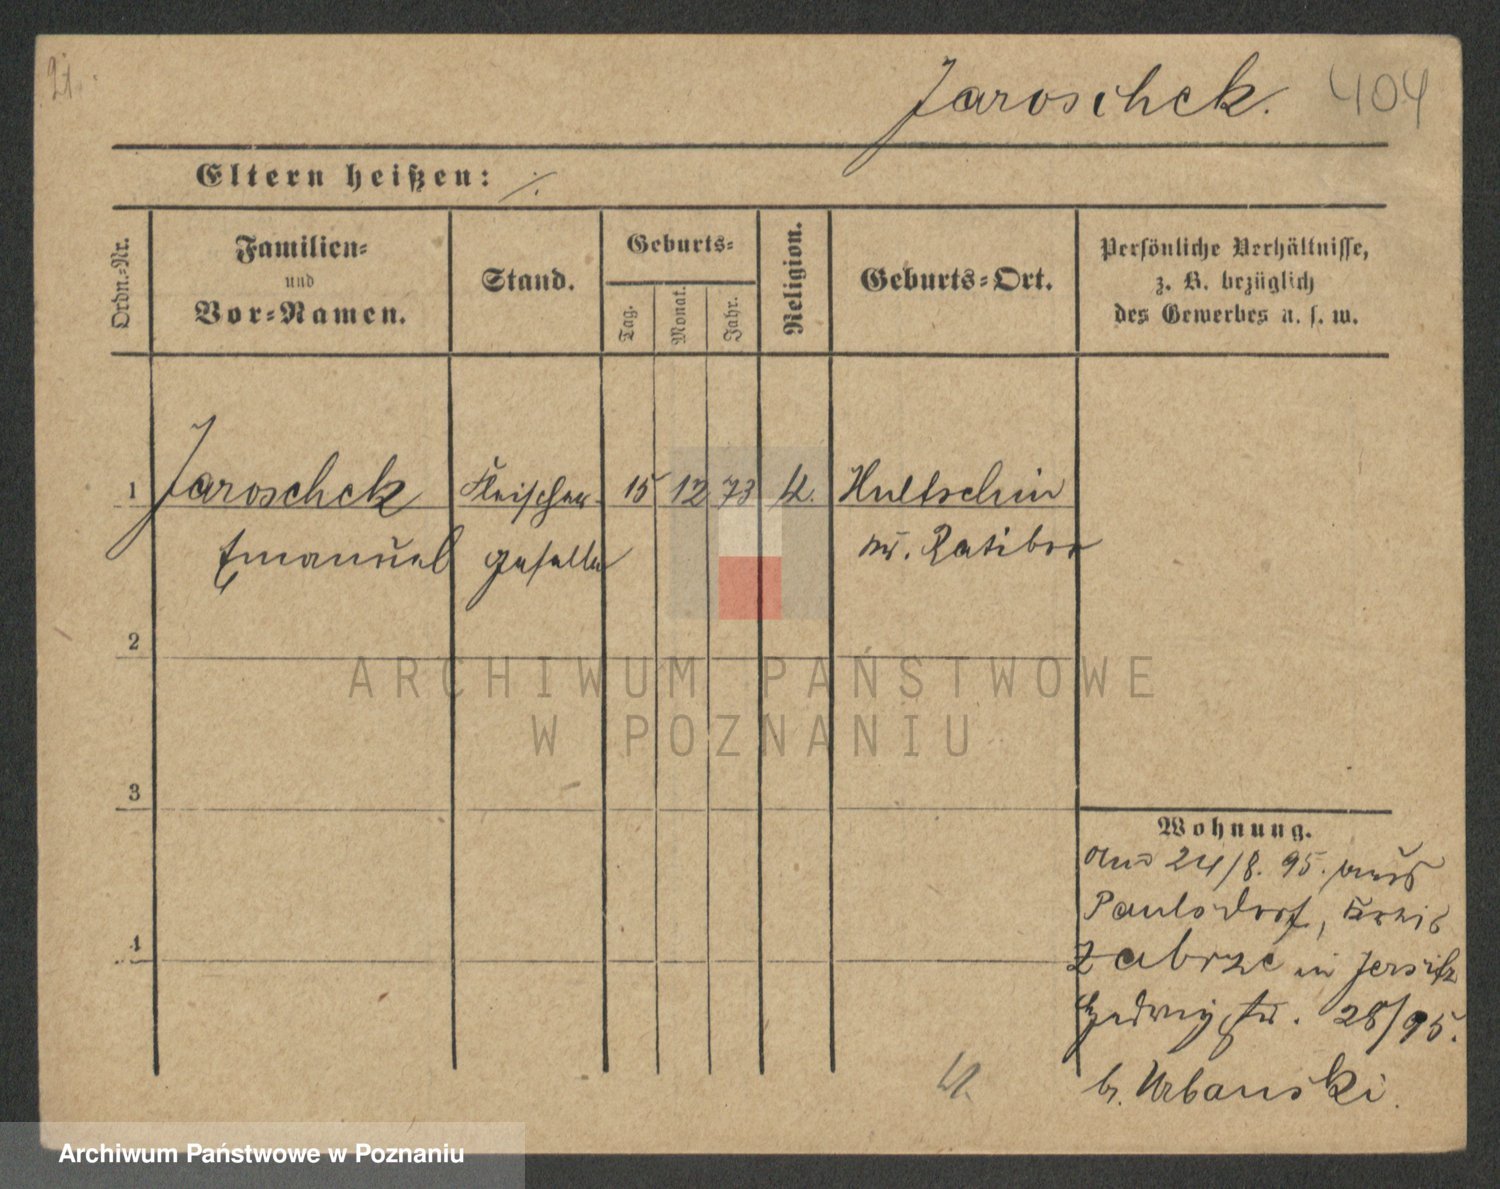 Jaroschek. 404
Eltern heißen: ./.
Ordn.-Nr.
Familien-
und
Vor-Namen.
Stand.
Geburts-
Tag.
Monat.
Jahr.
Religion.
Geburts-Ort.
Persönliche Verhältnisse,
z. B. bezüglich
des Gewerbes u. s. w.
1 Jaroschek Fleischer- 15 12 73 k. Hultschin
Emanuel geselle Kr. Ratibor
2
3
4
Wohnung.
24/8. 95. aus
Paulsdorf, Kreis
Zabrze in Jersitz
Hedwigstr. 28/95.
b. Urbanski.
ARCHIWUM PAŃSTWOWE
W POZNANIU
Archiwum Państwowe w Poznaniu